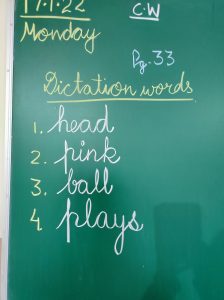 17.1.22 C.W
Monday
Pg. 33
Dictation words
1. head
2. pink
3. ball
4. plays